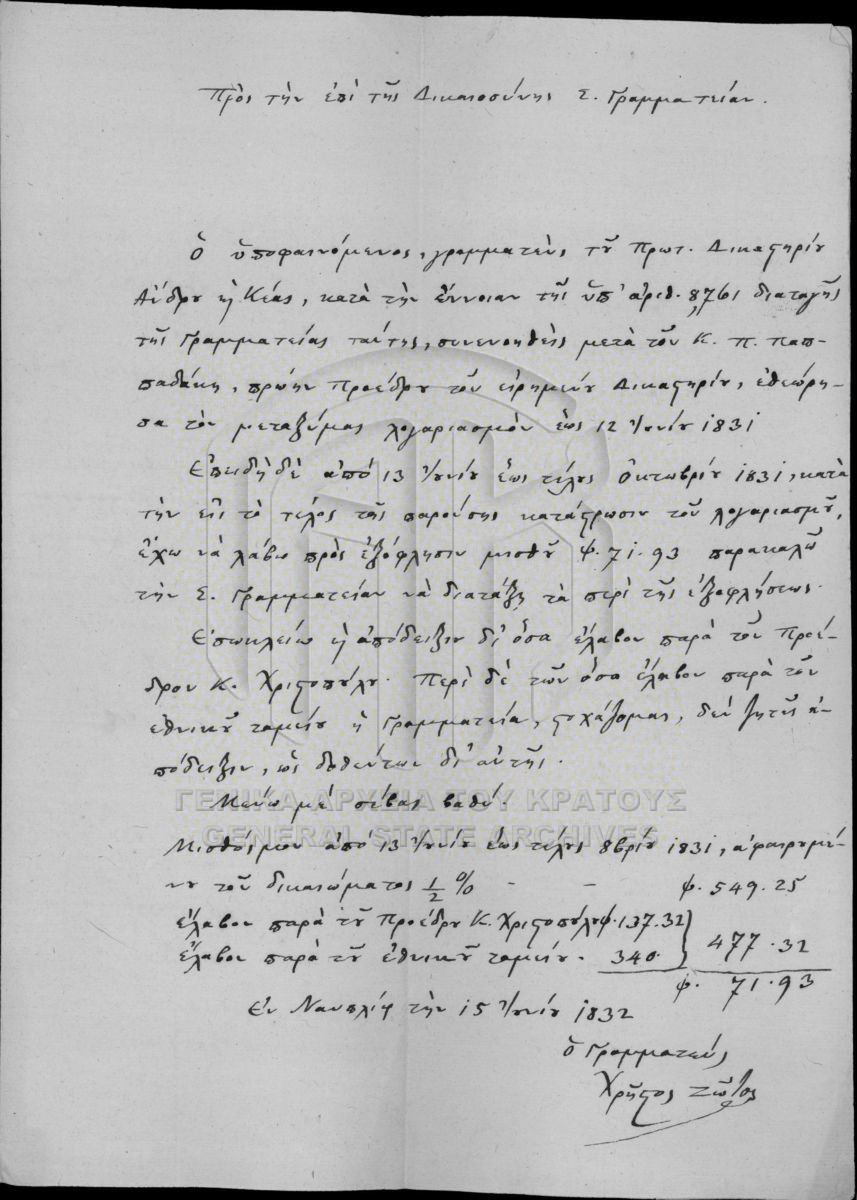 Πρὸς τὴν ἐπὶ τῆς Δικαιοσύνης Σ. Γραμματείαν.
Ὁ ὑποφαινόμενος, γραμματεὺς τȣ͂ Πρωτ. Δικαςηρίȣ
Ἄνδρȣ ϗ Κέας, κατὰ τὴν ἔννοιαν τῆς ὑπ' ἀριθ. 8,761 διαταγῆς
τῆς Γραμματείας ταύτης, συνενοηθεὶς μετὰ τοῦ Κ. Π. Παπ-
παδάκη, πρώην Προέδρȣ τοῦ εἰρημένȣ Δικαςηρίȣ, ἐθεώρη-
σα τὸν μεταξύμας λογαριασμὸν ἕως 12 Ἰουνίȣ 1831
Ἐπειδὴ δὲ ἀπὸ 13 Ἰουνίȣ ἕως τέλȣς Ὀκτωβρίȣ 1831, κατὰ
τὴν εἰς τὸ τέλος τῆς παρούσης κατάςρωσιν τοῦ λογαριασμȣ͂,
ἔχω νὰ λάβω πρὸς ἐξόφλησιν μισθȣ͂ φ. 71.93 παρακαλῶ
τὴν Σ. Γραμματείαν νὰ διατάξῃ τὰ περὶ τῆς ἐξοφλήσεως.
Ἐσωκλείω ϗ ἀπόδειξιν δι' ὅσα ἔλαβον παρὰ τοῦ Προέ-
δρου Κ. Χριςοπούλȣ. Περὶ δὲ τῶν ὅσα ἔλαβον παρὰ τοῦ
ἐθνικȣ͂ ταμείȣ ἡ Γραμματεία, ςοχάζομαι, δὲν ζητεῖ ἀ-
πόδειξιν, ὡς δοθέντων δι' αὐτῆς.
Μένω μὲ σέβας βαθύ.
Μισθόςμου ἀπὸ 13 Ἰουνίȣ ἕως τέλȣς 8βρίȣ 1831, ἀφαιρȣμέ-
νȣ τοῦ δικαιώματος 1/2 % - - φ. 549.25
ἔλαβον παρὰ τȣ͂ Προέδρȣ Κ. Χριςοπούλȣ φ. 137.32
ἔλαβον παρὰ τȣ͂ ἐθνικȣ͂ ταμείȣ. 340. } 477.32
φ. 71.93
Ἐν Ναυπλίῳ τὴν 15 Ἰουνίȣ 1832
ὁ Γραμματεύς
Χρῆςος